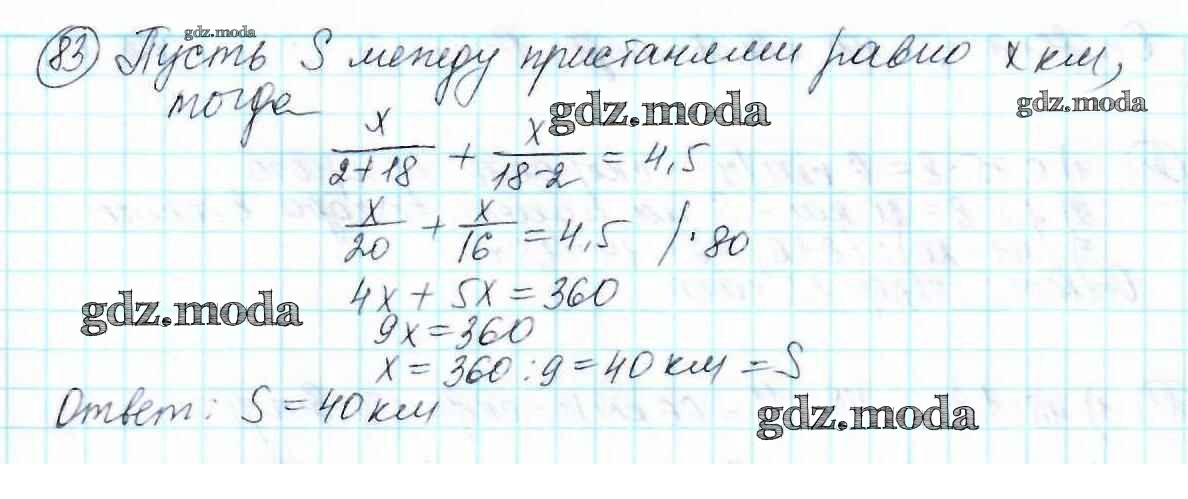 gdz.moda
83 Пусть S между пристанями равно x км,
gdz.moda
тогда
gdz.moda
x/(2+18) + x/(18-2) = 4,5
x/20 + x/16 = 4,5 /·80
4x + 5x = 360
gdz.moda
9x = 360
x = 360 : 9 = 40 км = S
Ответ: S = 40 км
gdz.moda